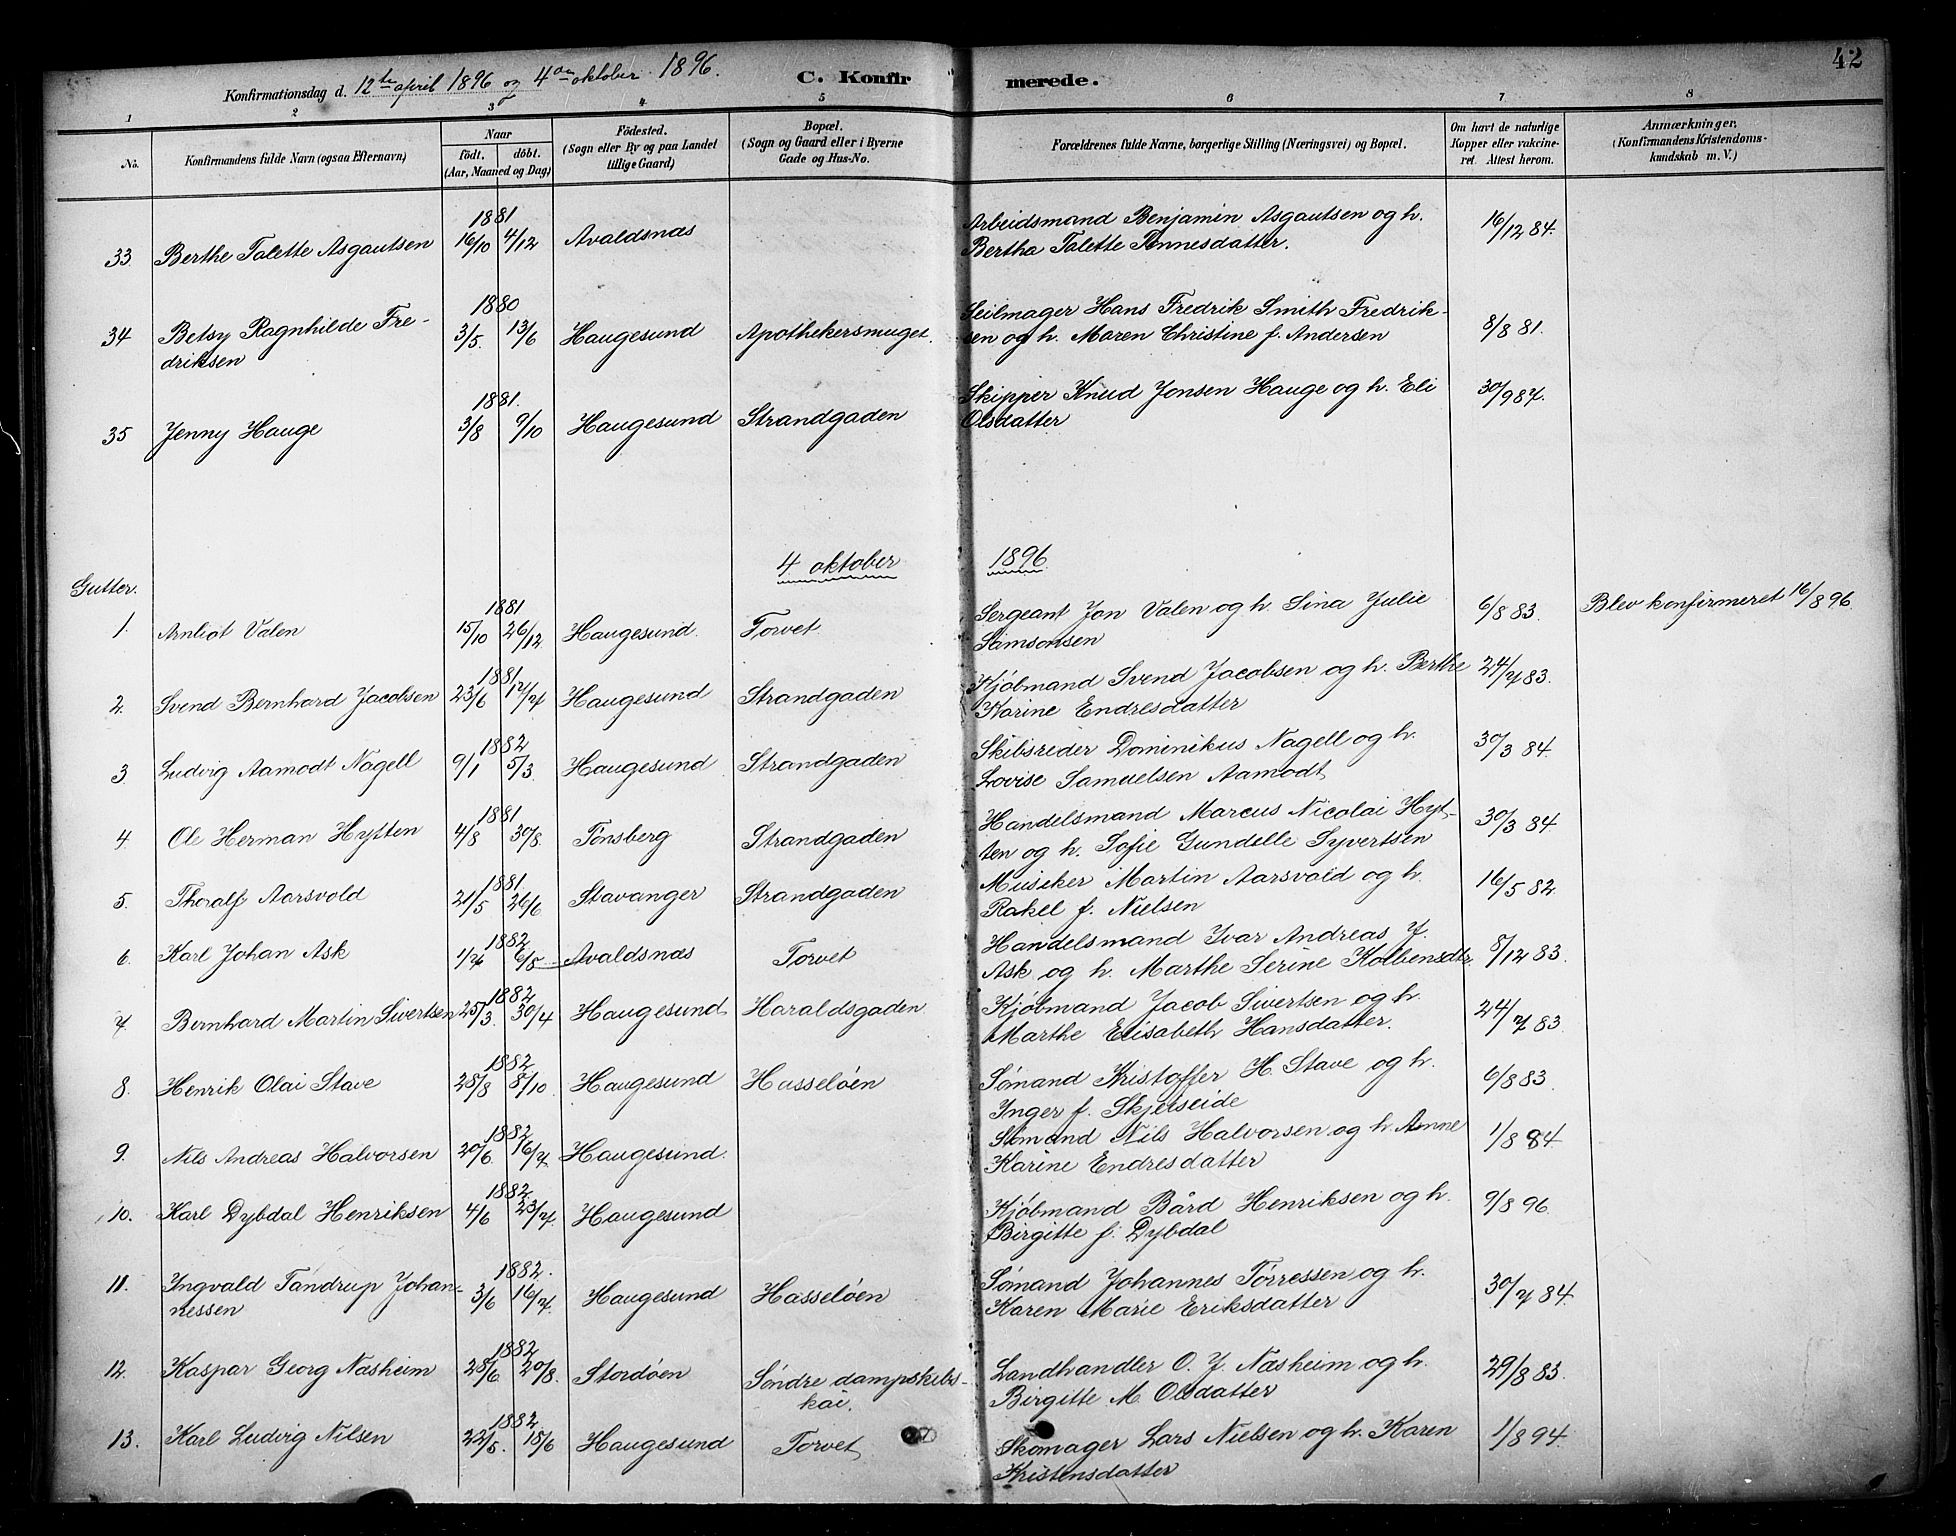 42
Konfirmationsdag d. 12te april 1896 og 4de oktober 1896. C. Konfirmerede.
1 2 3 4 5 6 7 8
No. Konfirmandens fulde Navn (ogsaa Efternavn) Naar födt. döbt. (Aar, Maaned og Dag) Födested. (Sogn eller By og paa Landet tillige Gaard) Bopæl. (Sogn og Gaard eller i Byerne Gade og Hus-No. Forældrenes fulde Navne, borgerlige Stilling (Næringsvei) og Bopæl. Om havt de naturlige Kopper eller vakcineret. Attest herom. Anmærkninger. (Konfirmandens Kristendomskundskab m. V.)
1881
33 Berthe Talette Asgautsen 16/10 4/12 Avaldsnæs Arbeidsmand Benjamin Asgautsen og h. 16/12 84.
Bertha Talette Tønnesdatter.
1880
34 Betsy Ragnhilde Fre- 3/5. 13/6 Haugesund Apothekersmuget. Seilmager Hans Fredrik Smith Fredrik- 8/8 81.
driksen sen og h. Maren Christine f. Andersen
1881.
35 Jenny Hauge 3/8 9/10 Haugesund Strandgaden Skipper Knud Jonsen Hauge og h. Eli 30/9 87.
Olsdatter
4 oktober 1896
Gutter.
1881
1. Arnliot Valen 15/10 26/12 Haugesund. Torvet Sergeant Jon Valen og h. Sina Julie 6/8 83. Blev konfirmeret 16/8 96.
Samsonsen
1881
2. Svend Bernhard Jacobsen 23/6 17/7 Haugesund Strandgaden Kjøbmand Svend Jacobsen og h. Berthe 24/7 83.
Karine Endresdatter
1882
3 Ludvig Aamodt Nagell 9/1 5/3. Haugesund Strandgaden Skibsreder Dominikus Nagell og h. 30/3 84.
Lovise Samuelsen Aamodt
1881
4. Ole Herman Hytten 4/8 30/8. Tønsberg Strandgaden Handelsmand Marcus Nicolai Hyt- 30/3 84
ten og h. Sofie Gundelle Syvertsen
1881
5. Thoralf Aarsvold 21/5 26/6 Stavanger Strandgaden Musiker Martin Aarsvold og h. 16/5 82.
Rakel f. Nielsen
1882
6. Karl Johan Ask 1/4 6/5 Avaldsnæs Torvet Handelsmand Ivar Andreas J. 5/12 83.
Ask og h. Marthe Serine Kolbensdtr.
1882
7 Bernhard Martin Sivertsen 25/3. 30/4 Haugesund Haraldsgaden Kjøbmand Jacob Sivertsen og h. 24/7 83.
Marthe Elisabeth Hansdatter.
1882
8. Henrik Olai Stave 28/8 8/10. Haugesund Hasseløen Sømand Kristoffer H. Stave og h. 6/8 83.
Inger f. Skjelseide
1882
9. Nils Andreas Halvorsen 20/6. 16/7 Haugesund. Sømand Nils Halvorsen og h. Anne 1/8 84
Karine Endresdatter
1882
10. Karl Dybdal Henriksen 4/6 23/7. Haugesund Kjøbmand Bård Henriksen og h. 9/8 96.
Birgitte f. Dybdal
1882.
11. Ingvald Tandrup Johan- 3/6 16/7. Haugesund Hasseløen Sømand Johannes Tørressen og h. 30/7 84.
nessen Karen Marie Eriksdatter
1882
12. Kaspar Georg Næsheim 28/6. 20/8. Stordøen Søndre dampskibs- Landhandler O. J. Næsheim og h. 29/8 83.
kai. Birgitte M. Olsdatter
1882
13. Karl Ludvig Nilsen 22/5. 18/6 Haugesund Torvet Skomager Lars Nielsen og h. Karen 1/8 94.
Kristensdatter